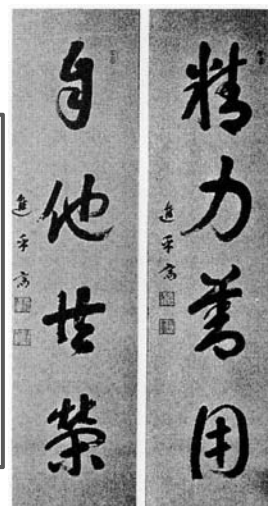 精力善用
進乎斎
自他共榮
進乎斎